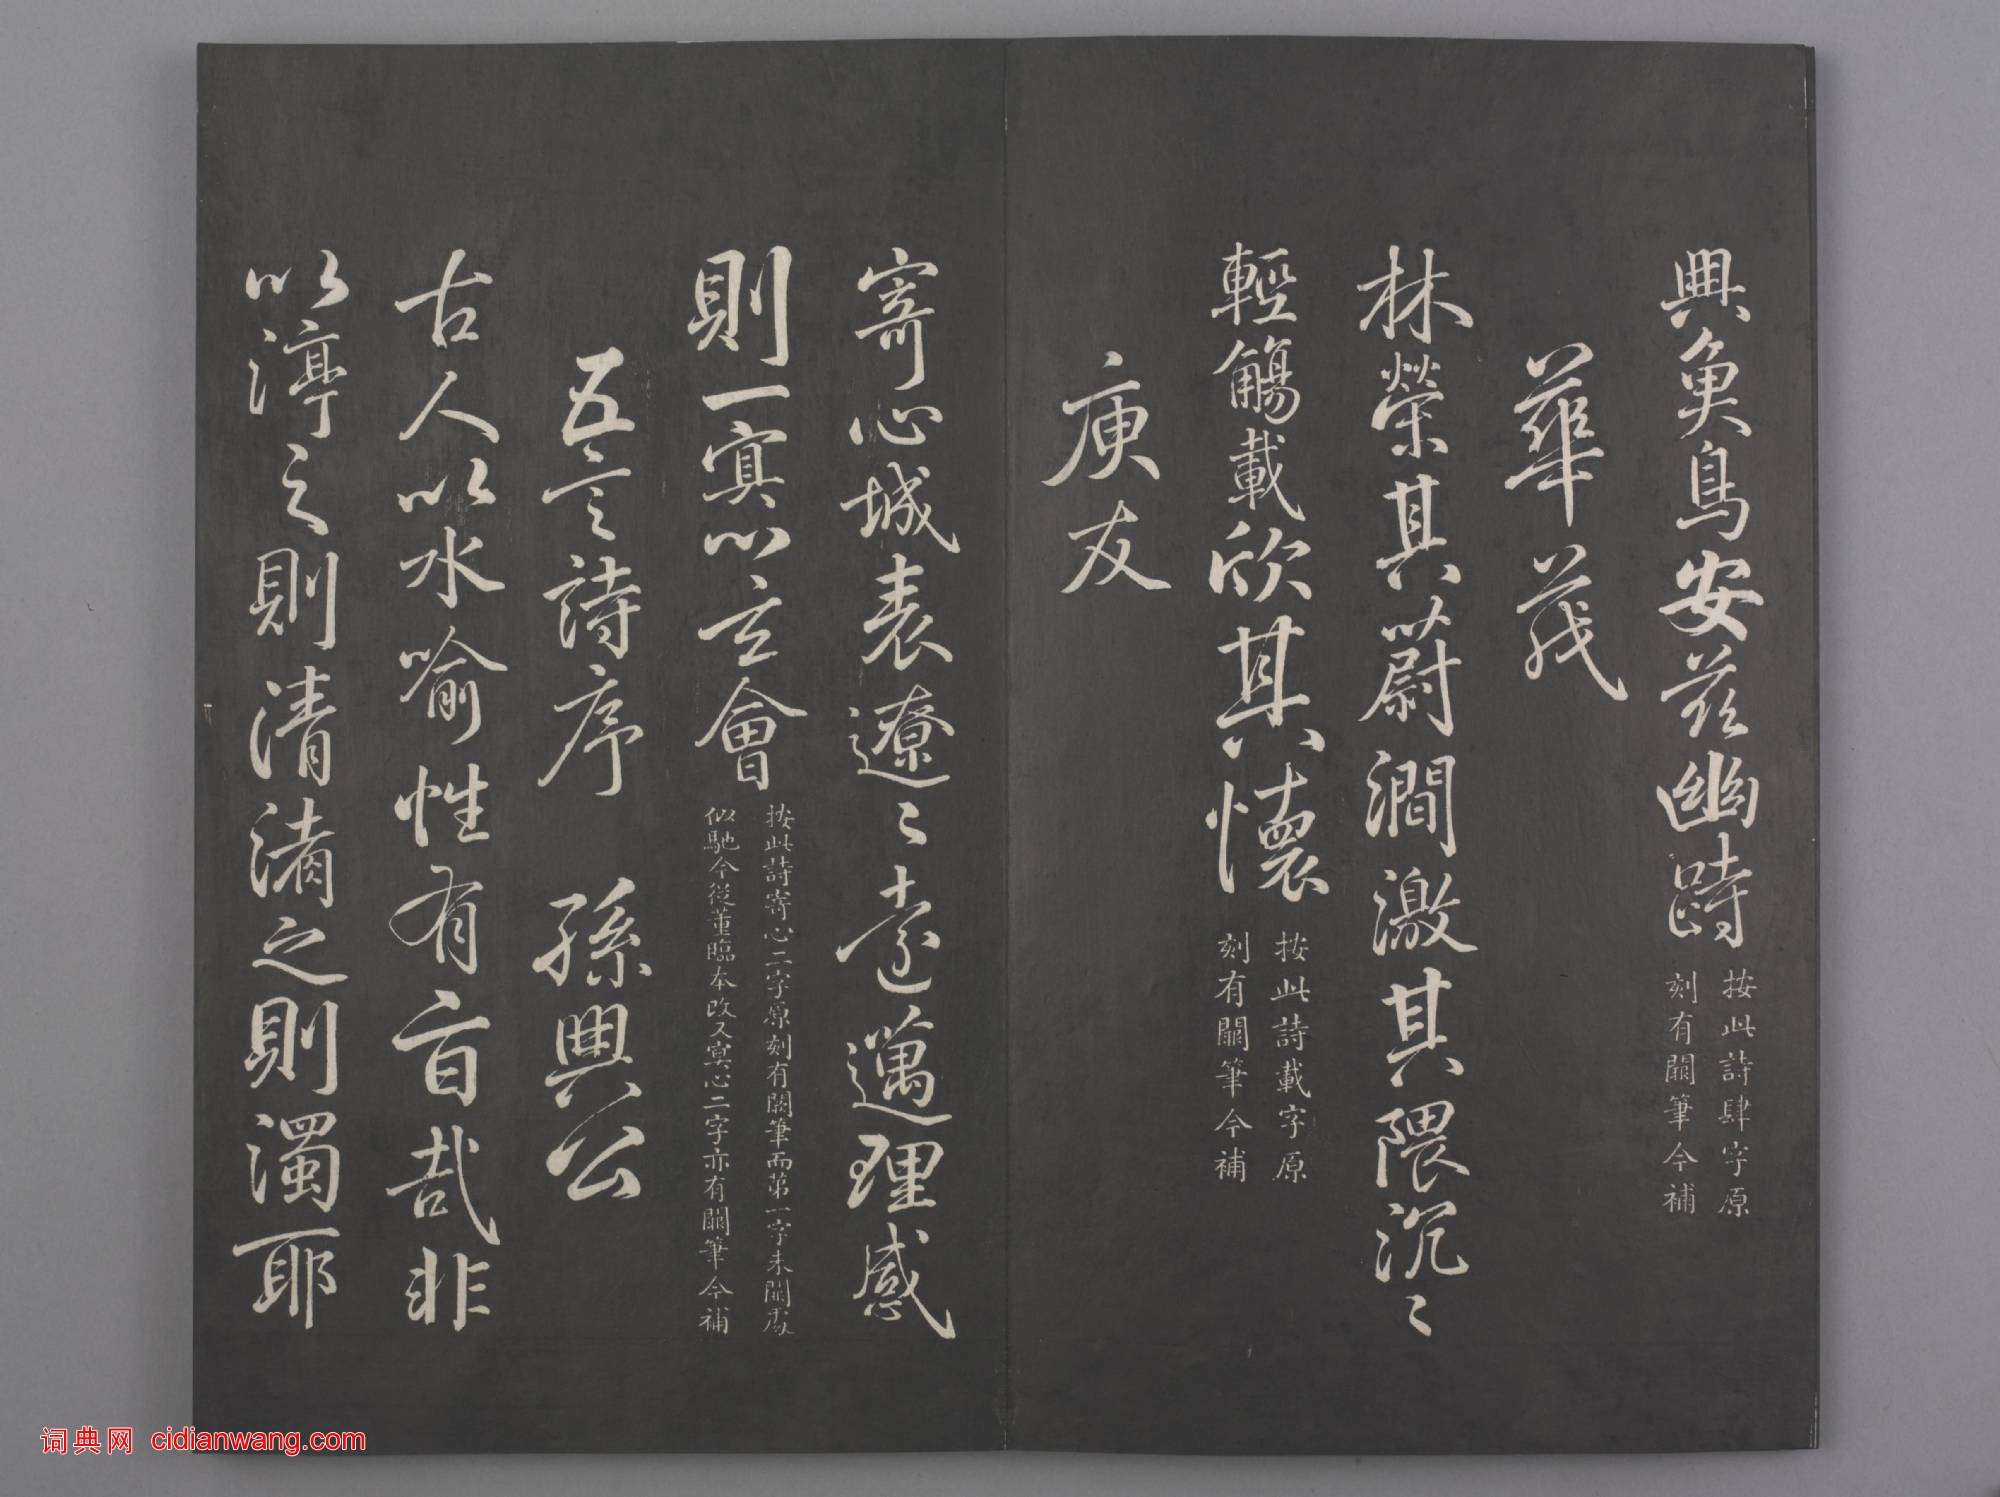 興魚鳥安茲幽跱
按此詩肆字原
刻有闕筆今補
華茂
林榮其蔚澗激其隈沉〻
輕觴載欣其懷
按此詩載字原
刻有闕筆今補
庾友
寄心域表遼〻遠邁理感
則一冥心玄會
按此詩寄心二字原刻有闕筆而第一字未闕處
似馳今從董臨本改又冥心二字亦有闕筆今補
五言詩序 孫興公
古人以水喻性有旨哉非
以渟之則清淆之則濁耶
词典网 cidianwang.com